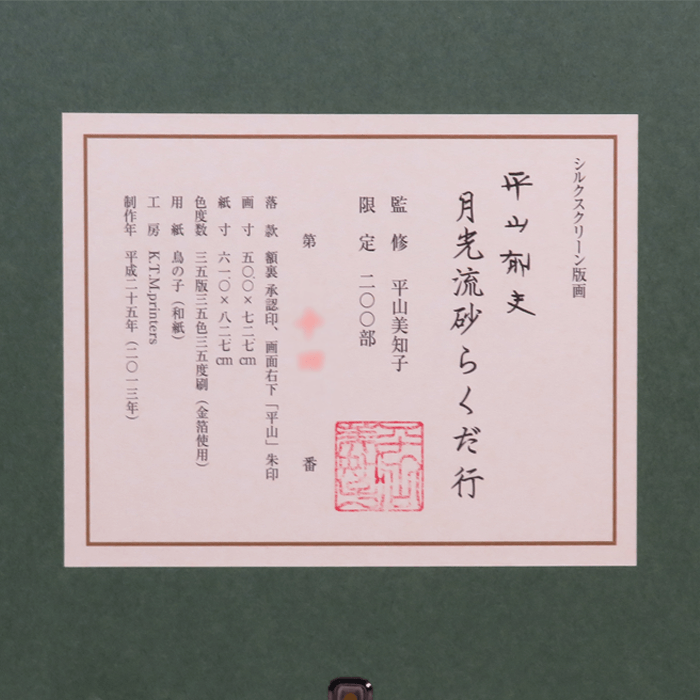 シルクスクリーン版画
平山郁夫
月光流砂らくだ行
監修 平山美知子
限定 二〇〇部
第 番
落款 額裏 承認印、画面右下「平山」朱印
画寸 五〇.〇×七二.七cm
紙寸 六一.〇×八二.七cm
色度数 三五版三五色三五度刷(金箔使用)
用紙 鳥の子(和紙)
工房 K.T.M.printers
制作年 平成二十五年(二〇一三年)